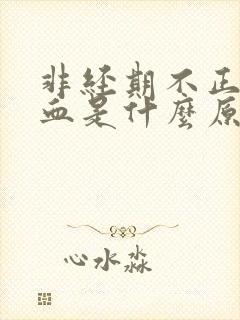 非经期不正
血是什麼原
心水淼